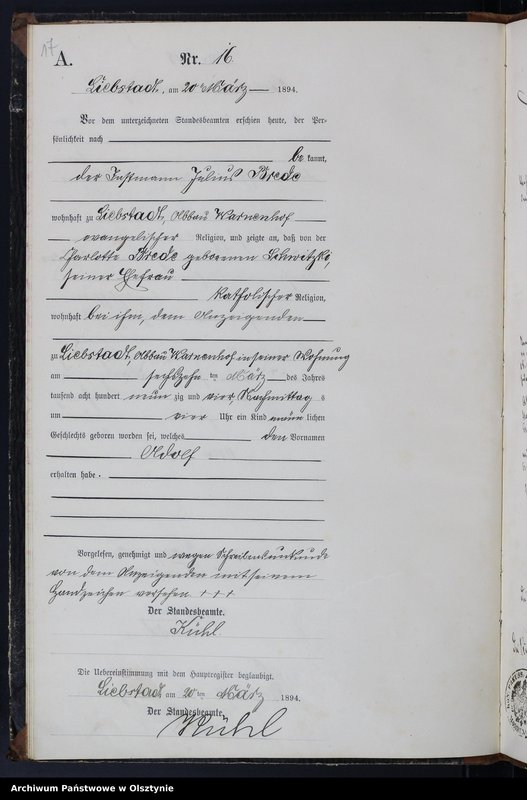 17
A.
Nr. 16
Liebstadt, am 20ten März 1894.
Vor dem unterzeichneten Standesbeamten erschien heute, der Per-
sönlichkeit nach
bekannt,
der Instmann Julius Brede
wohnhaft zu Liebstadt, Abbau Warnenhof
evangelischer Religion, und zeigte an, daß von der
Charlotte Brede geborenen Schwitzki,
seiner Ehefrau
katholischer Religion,
wohnhaft bei ihm, dem Anzeigenden
zu Liebstadt, Abbau Warnenhof in seiner Wohnung
am sechszehnten März des Jahres
tausend acht hundert neunzig und vier, Nachmittags
um vier Uhr ein Kind männlichen
Geschlechts geboren worden sei, welches den Vornamen
Adolf
erhalten habe.
Vorgelesen, genehmigt und wegen Schreibensunkunde
von dem Anzeigenden mit seinem
Handzeichen versehen. +++
Der Standesbeamte.
Kühl
Die Uebereinstimmung mit dem Hauptregister beglaubigt.
Liebstadt am 20ten März 1894.
Der Standesbeamte.
Kühl
Archiwum Państwowe w Olsztynie